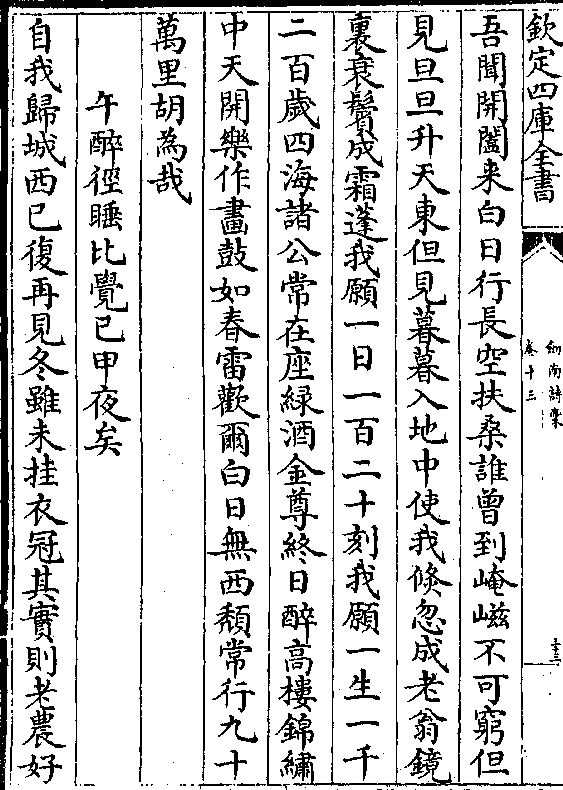 欽定四庫全書
劒南詩稾
卷十三
吾聞開闔来白日行長空扶桑誰曾到崦嵫不可窮但
見旦旦升天東但見暮暮入地中使我倐忽成老翁鏡
裏衰鬢成霜蓬我願一日一百二十刻我願一生一千
二百歲四海諸公常在座緑酒金尊終日醉高樓錦繡
中天開樂作畫鼓如春雷勸爾白日無西頽常行九十
萬里胡為哉
午醉徑睡比覺已甲夜矣
自我歸城西已復再見冬雖未挂衣冠其實則老農好